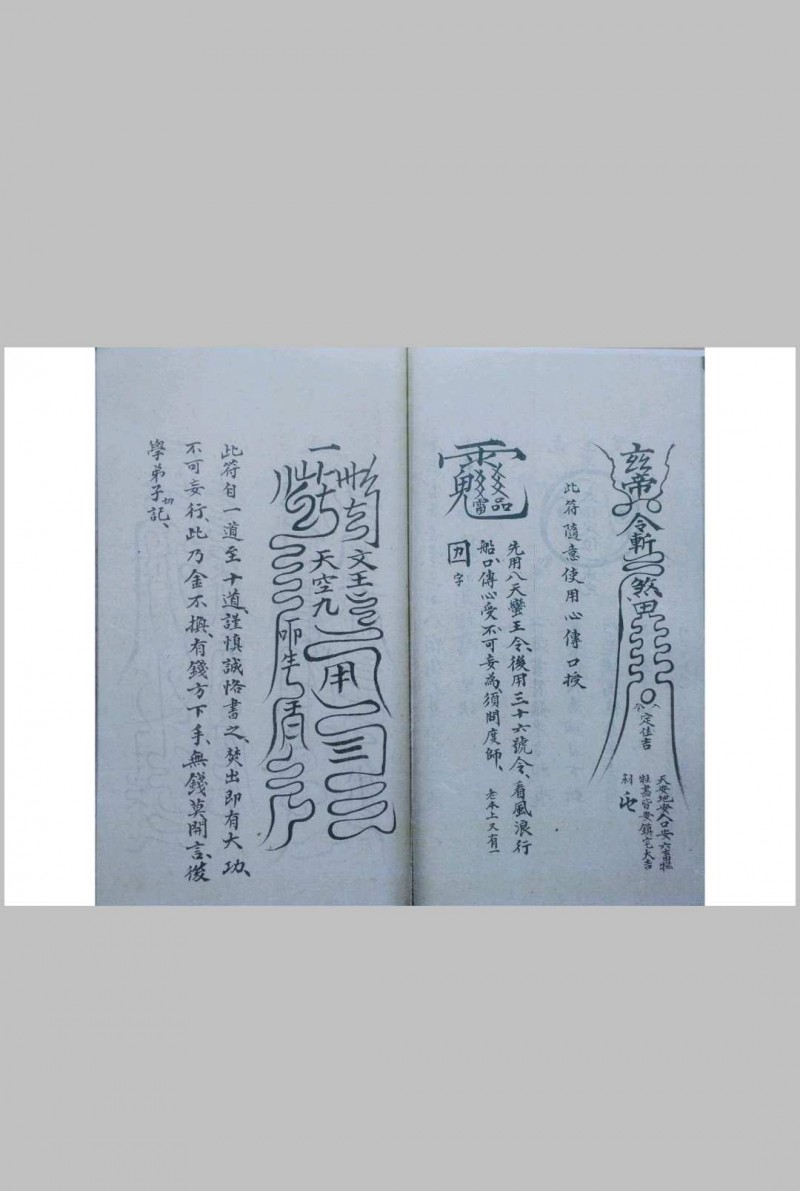 玄帝
令斬
煞
定佳吉
天安地安人口安六畜
皆安鎮宅大吉
此符隨意使用心傳口授
品
雷
先用八天蠻王令、後用三十六號令、看風浪行
船、口傳心受不可妄為、須問度師、老本上又有一
字
一
文王
天空九
用
此符自一道至十道、謹慎誠恪書之、焚出即有大功、
不可妄行、此乃金不換、有錢方下手、無錢莫開言、後
學弟子切記、